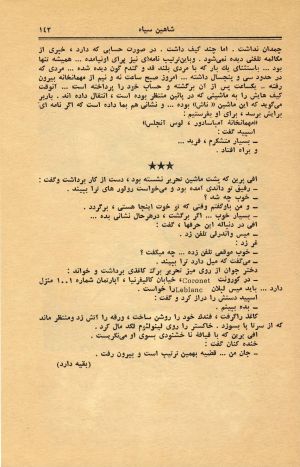 شاهین سیاه ۱۴۳
چمدان نداشت . اما چند کیف داشت . در صورت حسابی که دارد ، خبری از
مکالمه تلفنی دیده نمی‌شود . وباین‌ترتیب نامه‌ای نیز برای اونیامده ... همیشه تنها
بود ... باستثنای یك بار که با مردی بلند قد و گندم گون دیده شده ... مردی که
در حدود سی و پنجسال داشته ... امروز صبح ساعت نه و نیم از مهمانخانه بیرون
رفته .. یکساعت پس از آن برگشته و حساب خود را پرداخته است ... آنوقت
کیف هایش را به ماشینی که در پائین منتظر بوده است ، انتقال داده اند. باربر
می‌گوید که این ماشین « ناش» بوده ... و نشانی هم بما داده است که اگر نامه ای
برایش برسد ، برای او بفرستیم :
«مهمانخانهٔ امباسادور ، لوس آنجلس»
اسپید گفت :
ــ بسیار متشکرم ، فرید ...
و براه افتاد .
★★★
افی پرین که پشت ماشین تحریر نشسته بود ، دست از کار برداشت وگفت :
ــ رفیق تو داندی آمده بود و می‌خواست رولور های ترا ببیند .
ــ خوب چه شد ؟
ــ و من بازگفتم وقتی که تو خوت اینجا هستی ، برگردد .
ــ بسیار خوب ... اگر برگشت ، درهرحال نشانی بده ...
افی در دنباله این حرفها ، گفت :
ــ میس واندرلی تلفن زد .
فر زد :
ــ خوب موقعی تلفن زد ... چه میگفت ؟
ــ می‌گفت که میل دارد ترا ببیند .
دختر جوان از روی میز تحریر برگ کاغذی برداشت و خواند :
ــ در کورونت Coronet، خیابان کالیفرنیا ، آپارتمان شماره ۱۰۰۱ منزل
دارد ... باید میس لبلان Leblanc را خواست .
اسپید دستش را دراز کرد و گفت :
ــ بده ببینم .
کاغذ راگرفت ، فندك خود را روشن ساخت ، ورقه را آتش زد ومنتظر ماند
که از سرتا پا بسوزد . خاکستر را روی لینولئوم لگد مال کرد .
افی پرین که با قیافهٔ نا خشنودی بسوی او می‌نگریست .
خنده کنان گفت :
ــ جان من ... قضیه بهمین ترتیب است و بیرون رفت .
(بقیه دارد)